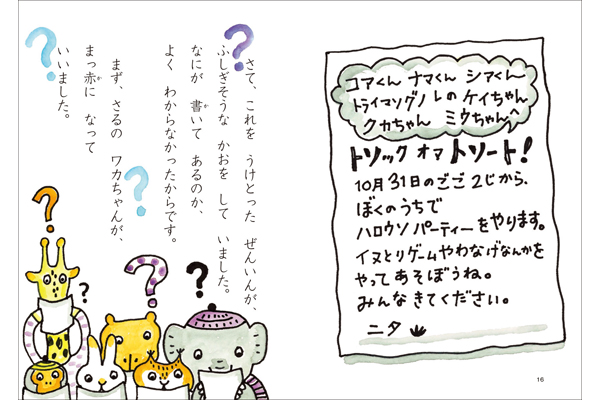 コアくん ナマくん シアくん
トライマソグノレの ケイちゃん
クカちゃん ミウちゃんへ
トソック オマ トソート!
10月31日のごご2じから、
ぼくのうちで
ハロウソパーティーをやります。
イヌとリゲームやわなげなんかを
やってあそぼうね。
みんなきてください。
ニタ
16
さて、これを うけとった ぜんいんが、
ふしぎそうな かおを して いました。
なにが 書いて あるのか、
よく わからなかったからです。
まず、さるの ワカちゃんが、
まっ赤に なって
いいました。